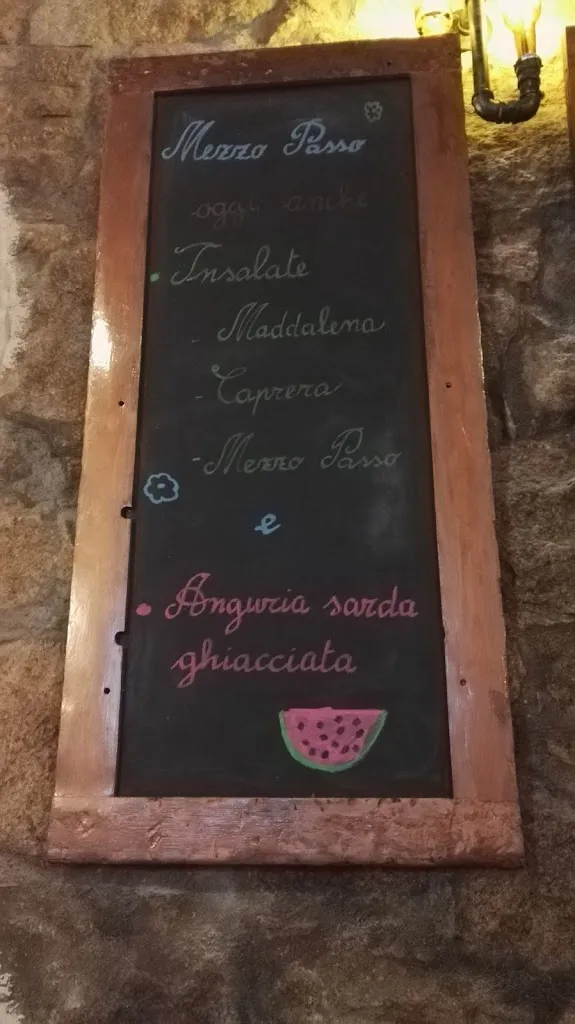 Mezzo Passo
oggi anche
• Insalate
- Maddalena
- Caprera
- Mezzo Passo
e
• Anguria sarda
ghiacciata